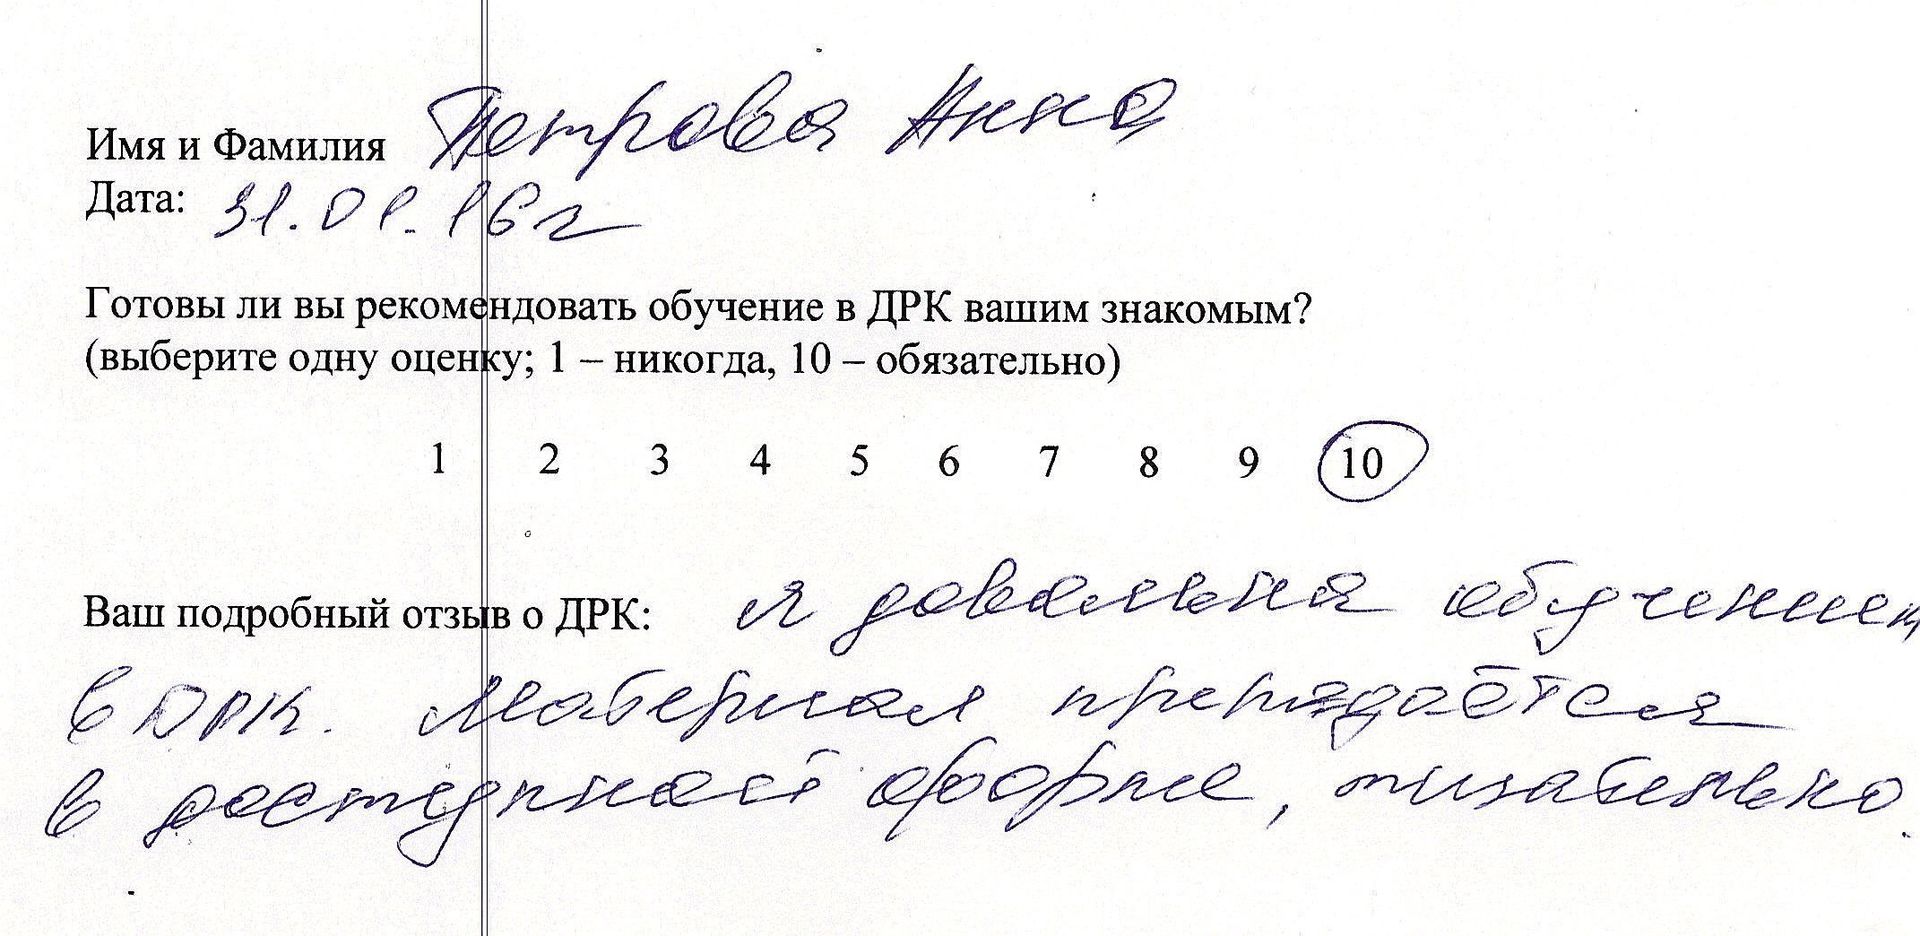 Имя и Фамилия Петрова Анна
Дата: 31.01.16г
Готовы ли вы рекомендовать обучение в ДРК вашим знакомым?
(выберите одну оценку; 1 – никогда, 10 – обязательно)
1 2 3 4 5 6 7 8 9 10
Ваш подробный отзыв о ДРК: я довольна обучением
в ДРК. Материал преподаётся
в доступной форме,